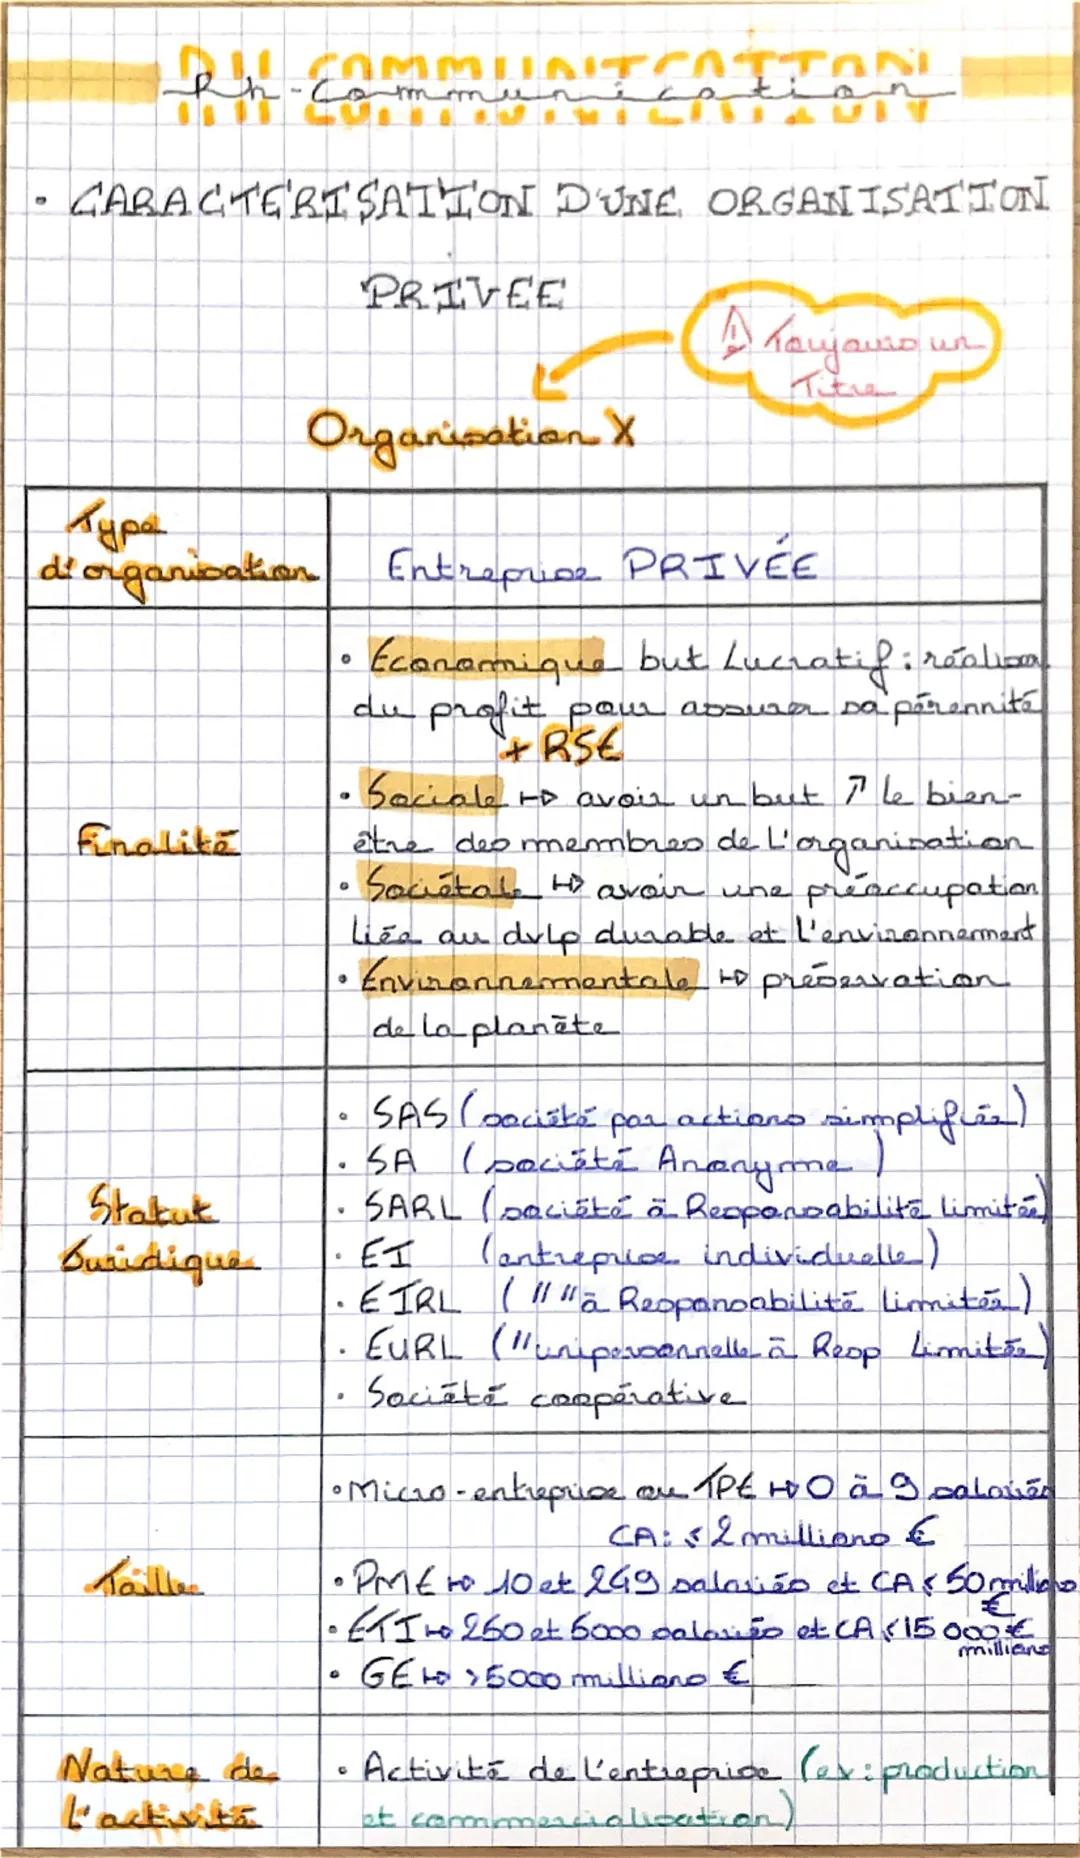 RH COMMUNICATION
Rh-Communication
• CARACTÉRISATION D'UNE ORGANISATION
PRIVEE
⚠ Toujours un
Titre
Organisation X
Type
d'organisation
Entreprise PRIVÉE
Finalité
• Économique but Lucratif : réaliser
du profit pour assurer sa pérennité
+ RSE
• Sociale ↦ avoir un but ↗ le bien-
être des membres de l'organisation
• Sociétale ↦ avoir une préoccupation
liée au dvlp durable et l'environnement
• Environnementale ↦ préservation
de la planète
Statut
Juridique
• SAS (société par actions simplifiée)
• SA (société Anonyme)
• SARL (société à Responsabilité limitée)
• EI (entreprise individuelle)
• EIRL (" " à Responsabilité limitée)
• EURL (" unipersonnelle à Resp Limitée)
• Société coopérative
Taille
• Micro-entreprise ou TPE ↦ 0 à 9 salariés
CA: ≤ 2 millions €
• PME ↦ 10 et 249 salariés et CA ≤ 50 millions
€
• ETI ↦ 250 et 5000 salariés et CA ≤ 15 000 €
millions
• GE ↦ >5000 millions €
Nature de
l'activité
• Activité de l'entreprise (ex : production
et commercialisation)